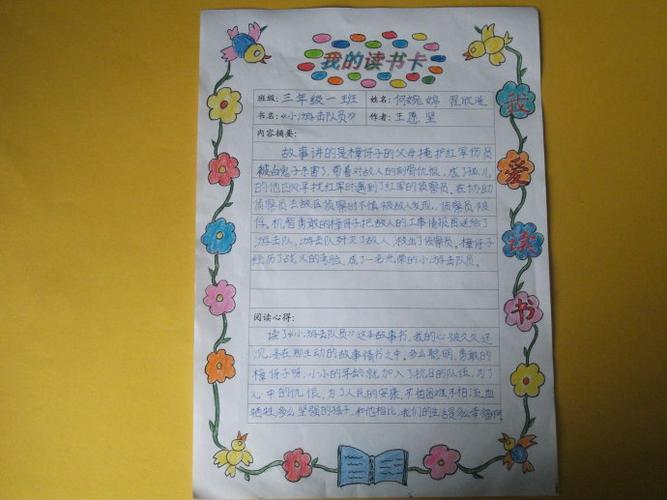 我的读书卡
班级:三年级一班 姓名:何婉婷
书名:《小游击队员》 作者:王愿坚
内容摘要:
故事讲的是樟伢子的父母掩护红军伤员
被白鬼子杀害了,带着对敌人的刻骨仇恨,成了孤儿
的他四处寻找红军时遇到了红军的侦察员,在协助
侦察员去敌区侦察时不慎被敌人发现,侦察员被
俘。机智勇敢的樟伢子把敌人的工事情报送给了
游击队,游击队歼灭了敌人,救出了侦察员。樟伢子
经历了战火的考验,成了一名光荣的小游击队员。
阅读心得:
读了《小游击队员》这本故事书,我的心被久久
沉浸在那生动的故事情节之中,多么聪明,勇敢的
樟伢子呀,小小的年龄就加入了抗日的队伍,为了
心中的仇恨,为了人民的安康,不怕困难不怕流血
牺牲,多么坚强的孩子,和他相比,我们的生活是多么幸福啊
我爱读书